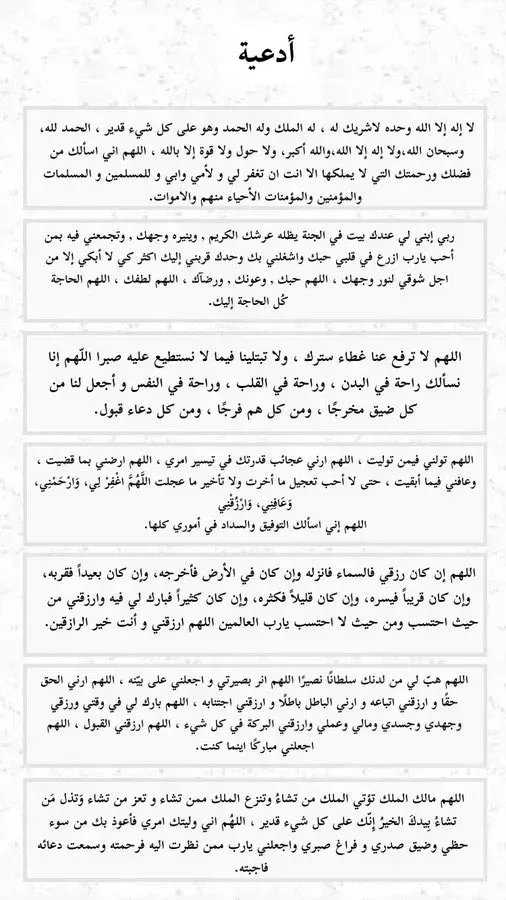 أدعية
لا إله إلا الله وحده لاشريك له ، له الملك وله الحمد وهو على كل شيء قدير ، الحمد لله،
وسبحان الله،ولا إله إلا الله،والله أكبر، ولا حول ولا قوة إلا بالله ، اللهم اني اسألك من
فضلك ورحمتك التي لا يملكها الا انت ان تغفر لي و لأمي وابي و للمسلمين و المسلمات
والمؤمنين والمؤمنات الأحياء منهم والاموات.
ربي إبني لي عندك بيت في الجنة يظله عرشك الكريم , وينيره وجهك , وتجمعني فيه بمن
أحب يارب ازرع في قلبي حبك واشغلني بك وحدك قربني إليك اكثر كي لا أبكي إلا من
اجل شوقي لنور وجهك ، اللهم حبك , وعونك , ورضآك ، اللهم لطفك ، اللهم الحاجة
كُل الحاجة إليك.
اللهم لا ترفع عنا غطاء سترك ، ولا تبتلينا فيما لا نستطيع عليه صبرا اللّهم إنا
نسألك راحة في البدن ، وراحة في القلب ، وراحة في النفس و أجعل لنا من
كل ضيق مخرجًا ، ومن كل هم فرجًا ، ومن كل دعاء قبول.
اللهم تولني فيمن توليت ، اللهم ارني عجائب قدرتك في تيسير امري ، اللهم ارضني بما قضيت ،
وعافني فيما أبقيت ، حتى لا أحب تعجيل ما أخرت ولا تأخير ما عجلت اللَّهُمَّ اغْفِرْ لِي، وَارْحَمْنِي،
وَعَافِنِي، وَارْزُقْنِي
اللهم إني اسألك التوفيق والسداد في أموري كلها.
اللهم إن كان رزقي فالسماء فانزله وإن كان في الأرض فأخرجه، وإن كان بعيداً فقربه،
وإن كان قريباً فيسره، وإن كان قليلاً فكثره، وإن كان كثيراً فبارك لي فيه وارزقني من
حيث احتسب ومن حيث لا احتسب يارب العالمين اللهم ارزقني و أنت خير الرازقين.
اللهم هبّ لي من لدنك سلطانًا نصيرًا اللهم انر بصيرتي و اجعلني على بيّنه ، اللهم ارني الحق
حقًا و ارزقني اتباعه و ارني الباطل باطلًا و ارزقني اجتنابه ، اللهم بارك لي في وقتي ورزقي
وجهدي وجسدي ومالي وعملي وارزقني البركة في كل شيء ، اللهم ارزقني القبول ، اللهم
اجعلني مباركًا اينما كنت.
اللهم مالك الملك تؤتي الملك من تشاءُ وتنزع الملك ممن تشاء و تعز من تشاء وَتذل مَن
تشاءُ بِيدكَ الخيرُ إِنّك على كل شيء قدير ، اللهُم اني وليتك امري فأعوذ بك من سوء
حظي وضيق صدري و فراغ صبري واجعلني يارب ممن نظرت اليه فرحمته وسمعت دعائه
فاجبته.